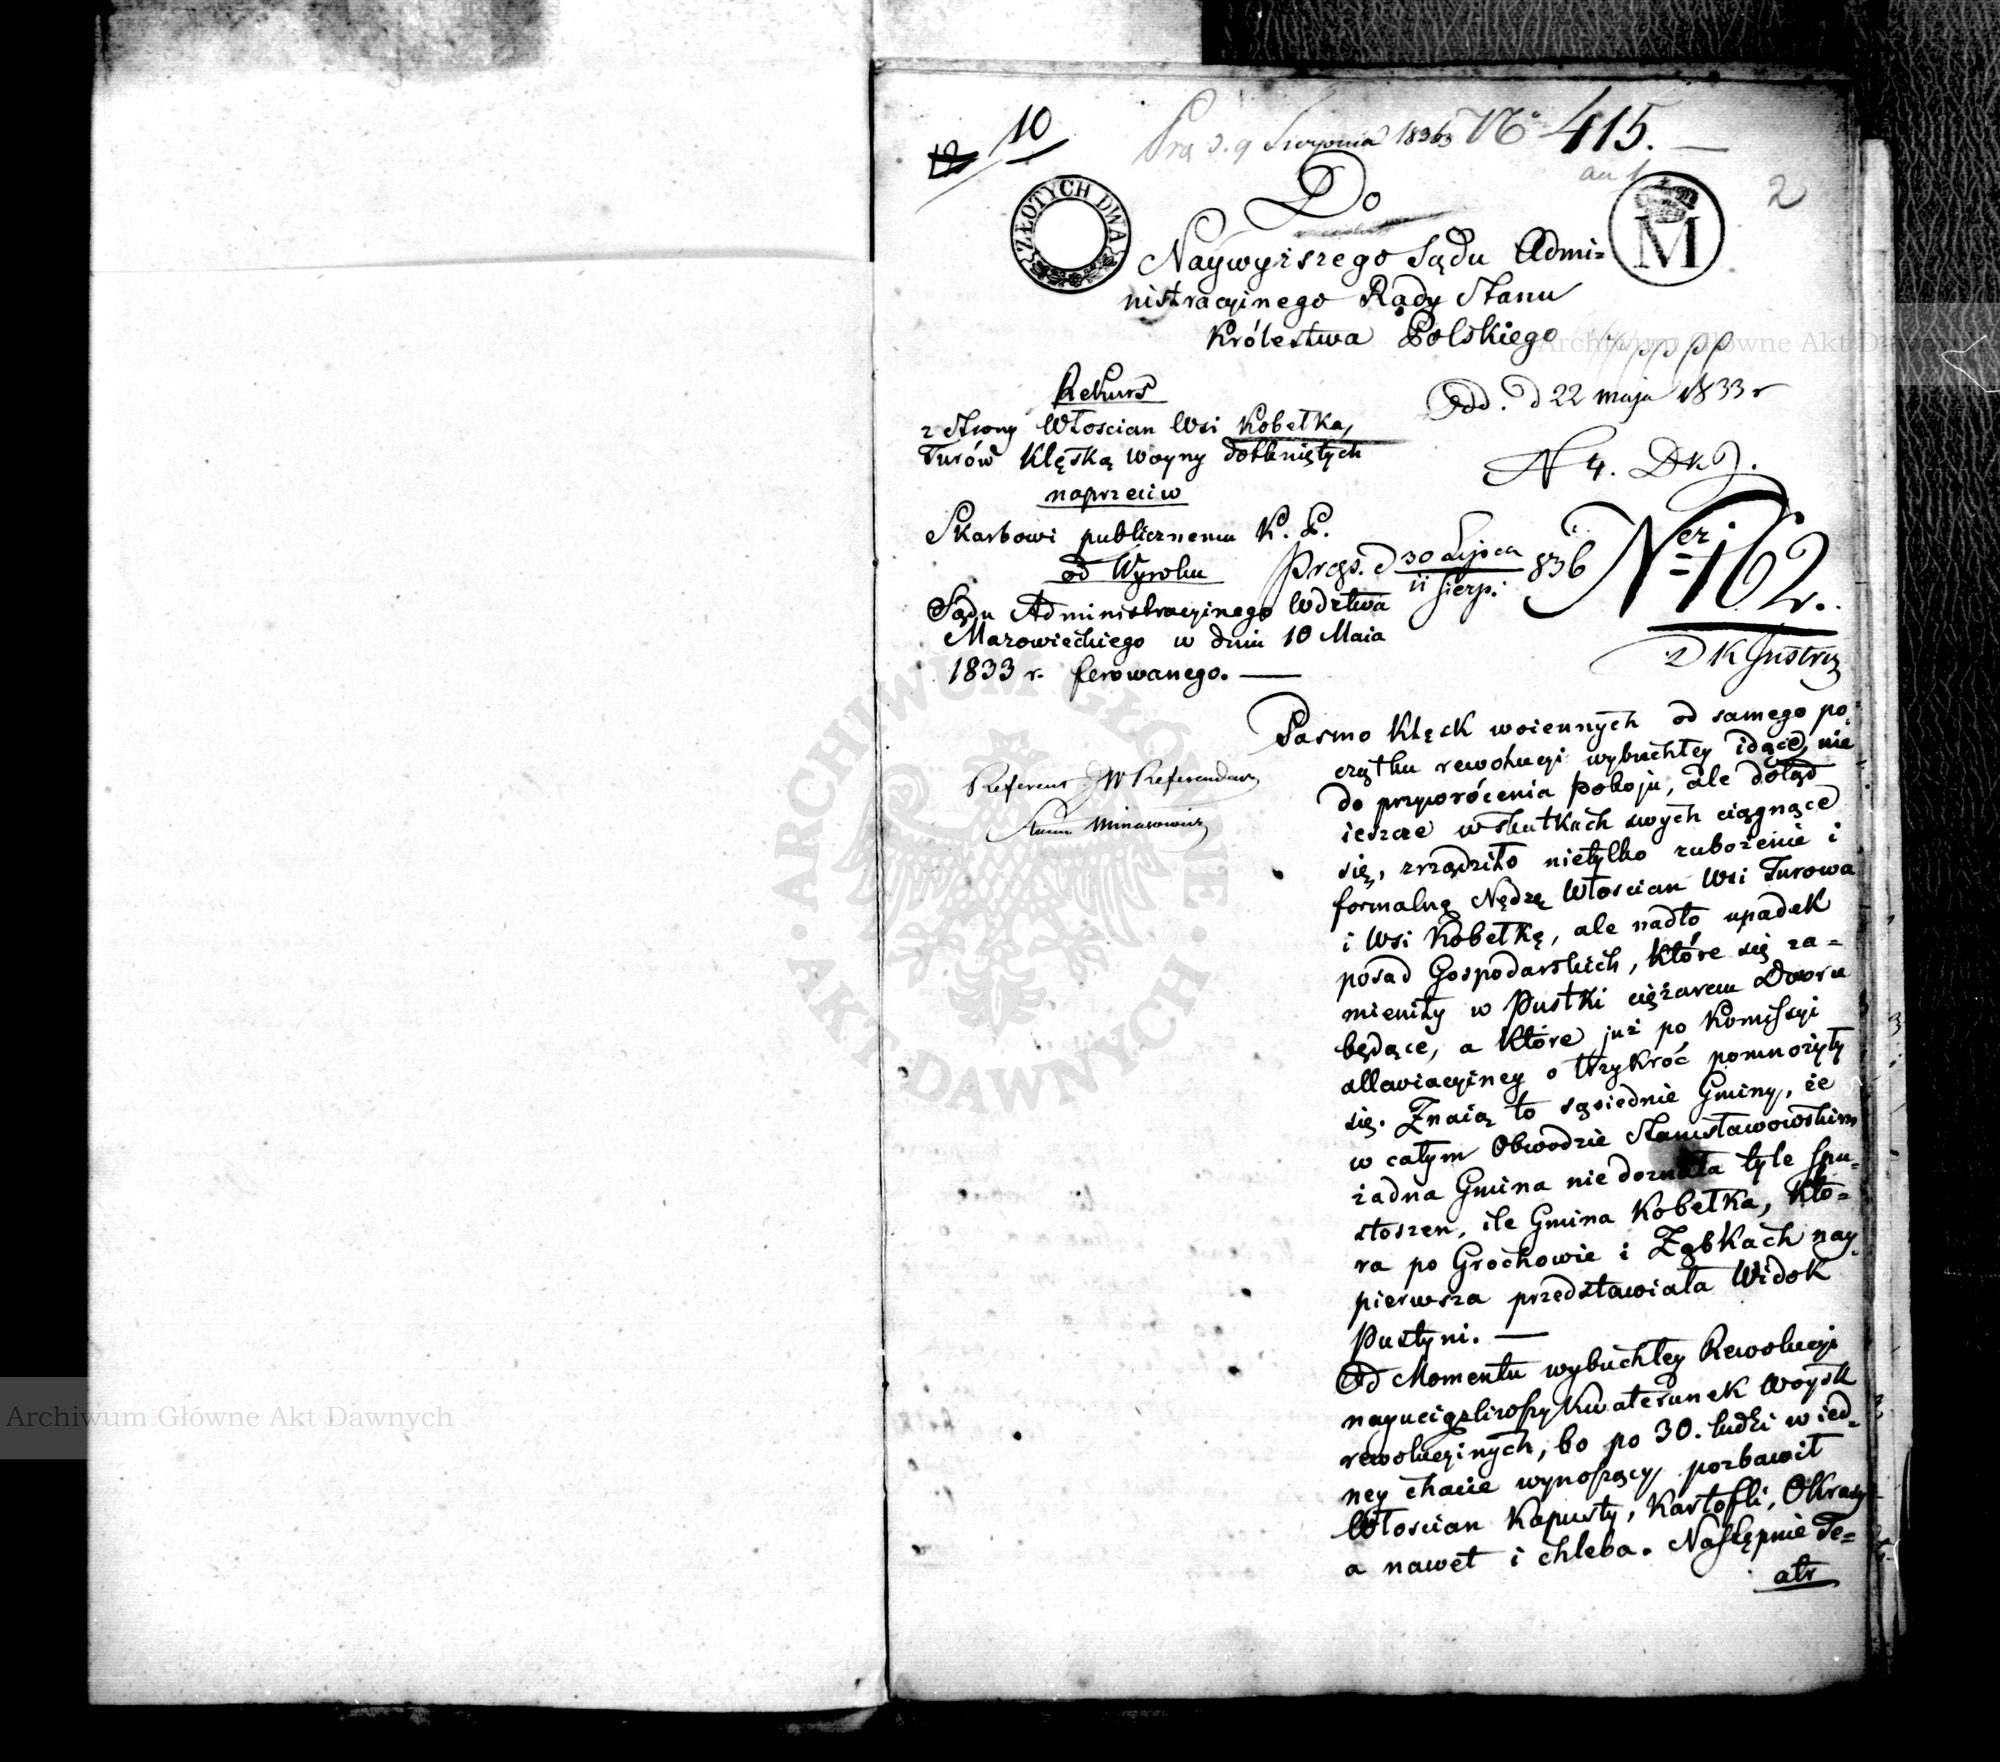 10
Prez. d. 9 Sierpnia 1833 No 415.
2
ZŁOTYCH DWA
M
Do
Naywyższego Sądu Admi=
nistracyinego Rady Stanu
Królestwa Polskiego
Odd. d 22 maja 1833 r
Rekurs
z strony Włoscian Wsi Kobełka,
Turów Klęską woyny dotkniętych
naprzeciw
Skarbowi publicznemu K. P.
od Wyroku
Sądu Administracyinego Wdztwa
Mazowieckiego w dniu 10 Maia
1833 r. ferowanego. —
N 4. D K J.
Ner 162.
Prezs. d 30 Lipca / 11 Sierp. 836
D K Justrz
Referent JW Referendarz
Stanu Minasowicz
Pasmo Klęck woiennych od samego po=
czątku rewolucyi wybuchłey idące, nie
do przywrócenia pokoju, ale dotąd
ieszcze w skutkach swych ciągnące
się, zrządziło nietylko zubożenie i
formalną Nędzę Włoscian Wsi Turowa
i Wsi Kobełkę, ale nadto upadek
posad Gospodarskich, które się za=
mieniły w Pustki ciężarem Dworu
będące, a które już po Komissyi
allewiacyiney o trzykroć pomnożyły
się. Znaią to sąsiednie Gminy, że
w całym Obwodzie Stanisławowskim
żadna Gmina niedoznała tyle spu=
stoszen, ile Gmina Kobełka, któ=
ra po Grochowie i Ząbkach nay=
pierwsza przedstawiała Widok
Pustyni. —
Od Momentu wybuchłey Rewolucyi
nayuciążliwszy Kwaterunek Woysk
rewolucyinych, bo po 30. ludzi w ied=
ney chacie wynoszący, pozbawił
Włoscian Kapusty, Kartofli, Okrasy
a nawet i chleba. Następnie Te=
atr
ARCHIWUM GŁÓWNE AKT DAWNYCH
Archiwum Główne Akt Dawnych
Archiwum Główne Akt Dawnych